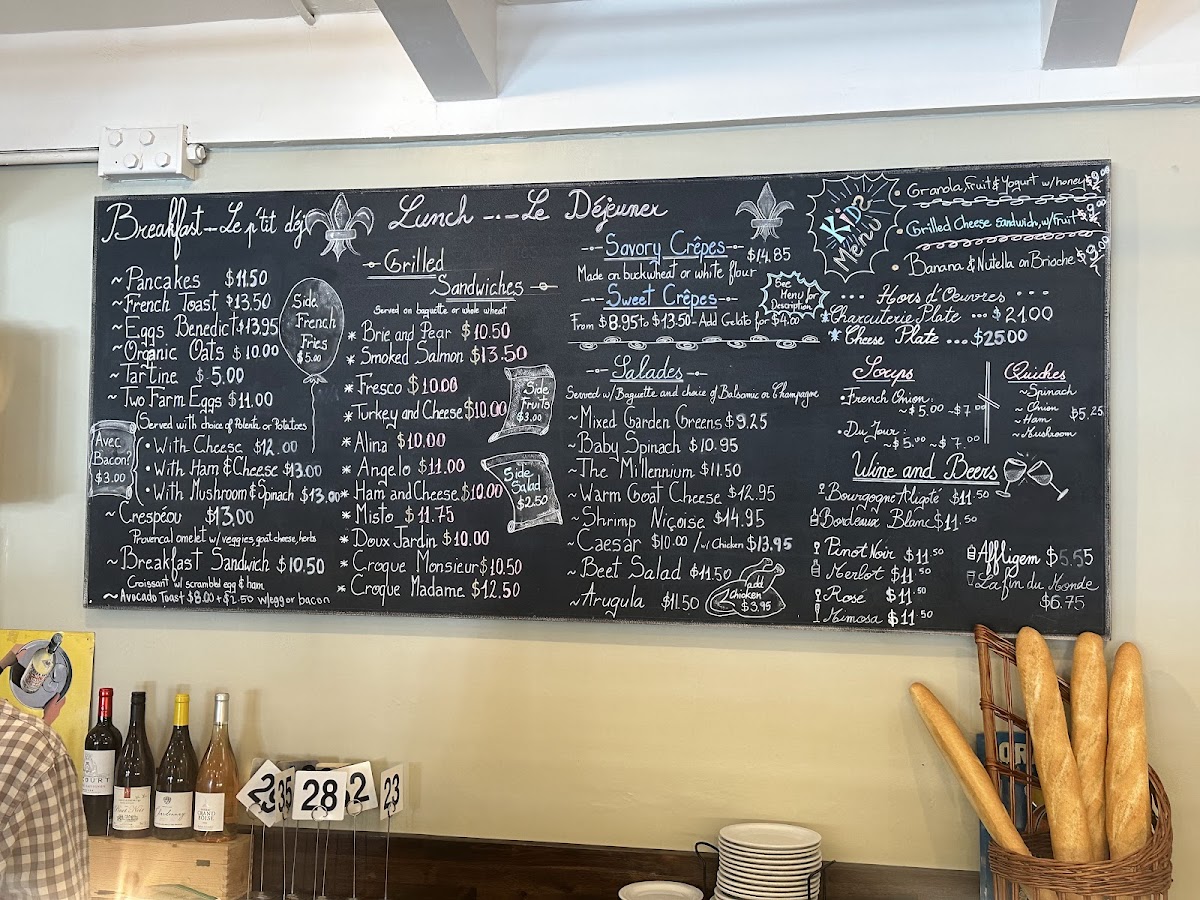 Breakfast--Le p'tit déj
~Pancakes $11.50
~French Toast $13.50
~Eggs Benedict $13.95
~Organic Oats $10.00
~Tartine $5.00
~Two Farm Eggs $11.00
Served with choice of Polenta or Potatoes
•With Cheese $12.00
•With Ham & Cheese $13.00
•With Mushroom & Spinach $13.00
~Crespéou $13.00
Provencal omelet w/ veggies, goat cheese, herbs
~Breakfast Sandwich $10.50
Croissant w/ scrambled egg & ham
~Avocado Toast $8.00 + $2.50 w/egg or bacon
Avec
Bacon!
$3.00
Side
French
Fries
$5.00
Lunch -.-Le Déjeuner
Grilled
Sandwiches
Served on baguette or whole wheat
* Brie and Pear $10.50
* Smoked Salmon $13.50
* Fresco $10.00
* Turkey and Cheese $10.00
* Alina $10.00
* Angelo $11.00
* Ham and Cheese $10.00
* Misto $11.75
* Doux Jardin $10.00
* Croque Monsieur $10.50
* Croque Madame $12.50
Side
Fruits
$3.00
Side
Salad
$2.50
Savory Crêpes $14.85
Made on buckwheat or white flour
Sweet Crêpes
From $8.95 to $13.50 - Add Gelato for $4.00
See
Menu for
Description
Salades
Served w/ Baguette and choice of Balsamic or Champagne
~Mixed Garden Greens $9.25
~Baby Spinach $10.95
~The Millennium $11.50
~Warm Goat Cheese $12.95
~Shrimp Niçoise $14.95
~Caesar $10.00 / w/ Chicken $13.95
~Beet Salad $11.50
~Arugula $11.50
add
chicken
$3.95
Kids
Menu
• Granola, Fruit & Yogurt w/honey
• Grilled Cheese Sandwich, w/fruit
• Banana & Nutella on Brioche
Hors d'Oeuvres
*Charcuterie Plate ... $21.00
*Cheese Plate ... $25.00
Soups
•French Onion:
~$5.00 ~$7.00
•Du Jour:
~$5.00 ~$7.00
Quiches
~Spinach
~Onion
~Ham $5.25
~Mushroom
Wine and Beers
Bourgogne Aligoté $11.50
Bordeaux Blanc $11.50
Pinot Noir $11.50
Merlot $11.50
Rosé $11.50
Mimosa $11.50
Affligem $5.55
La fin du Monde
$6.75
35
28
2
23